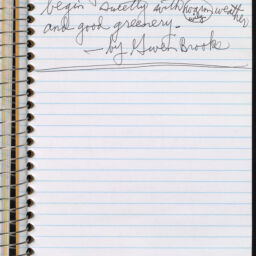 begin sweetly with (warm) weather
and good greenery.
— by Gwen Brooks